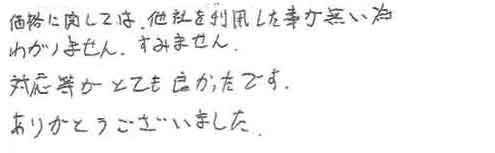 価格に関しては、他社を利用した事が無い為
わかりません。すみません。
対応等がとても良かったです。
ありがとうございました。